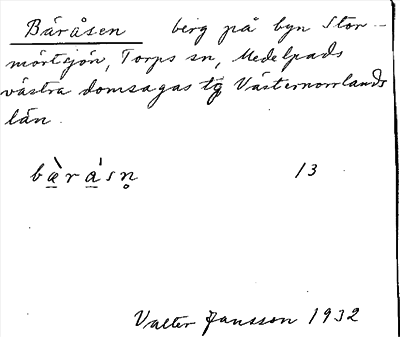 Båråsen berg på byn Stor-
mörtsjön, Torps sn, Medelpads
västra domsagas tg Västernorrlands
län.
bæ̀rásn̥ 13
Valter Jansson 1932